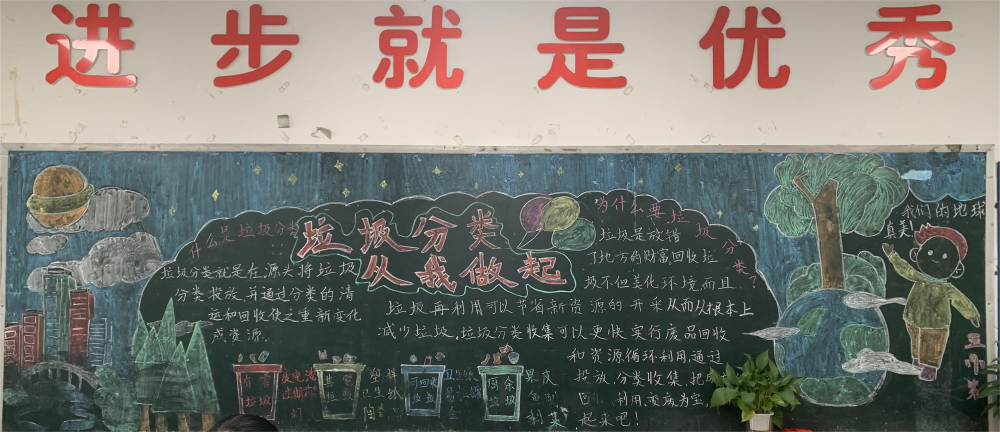 进步就是优秀
垃圾分类
从我做起
什么是垃圾分类
垃圾分类就是在源头将垃圾
分类投放,并通过分类的清
运和回收使之重新变化
成资源.
为什么要垃圾分类?
垃圾是放错
了地方的财富回收垃
圾不但美化环境而且
垃圾再利用可以节省新资源的开采从而从根本上
减少垃圾,垃圾分类收集可以更快实行废品回收
和资源循环利用,通过
投放,分类收集,把
利用,变废为宝,
起来吧!
我们的地球
真美!
有害
垃圾
废电池
其它
垃圾
塑料
可回收
垃圾
厨余
垃圾
果皮
剩菜